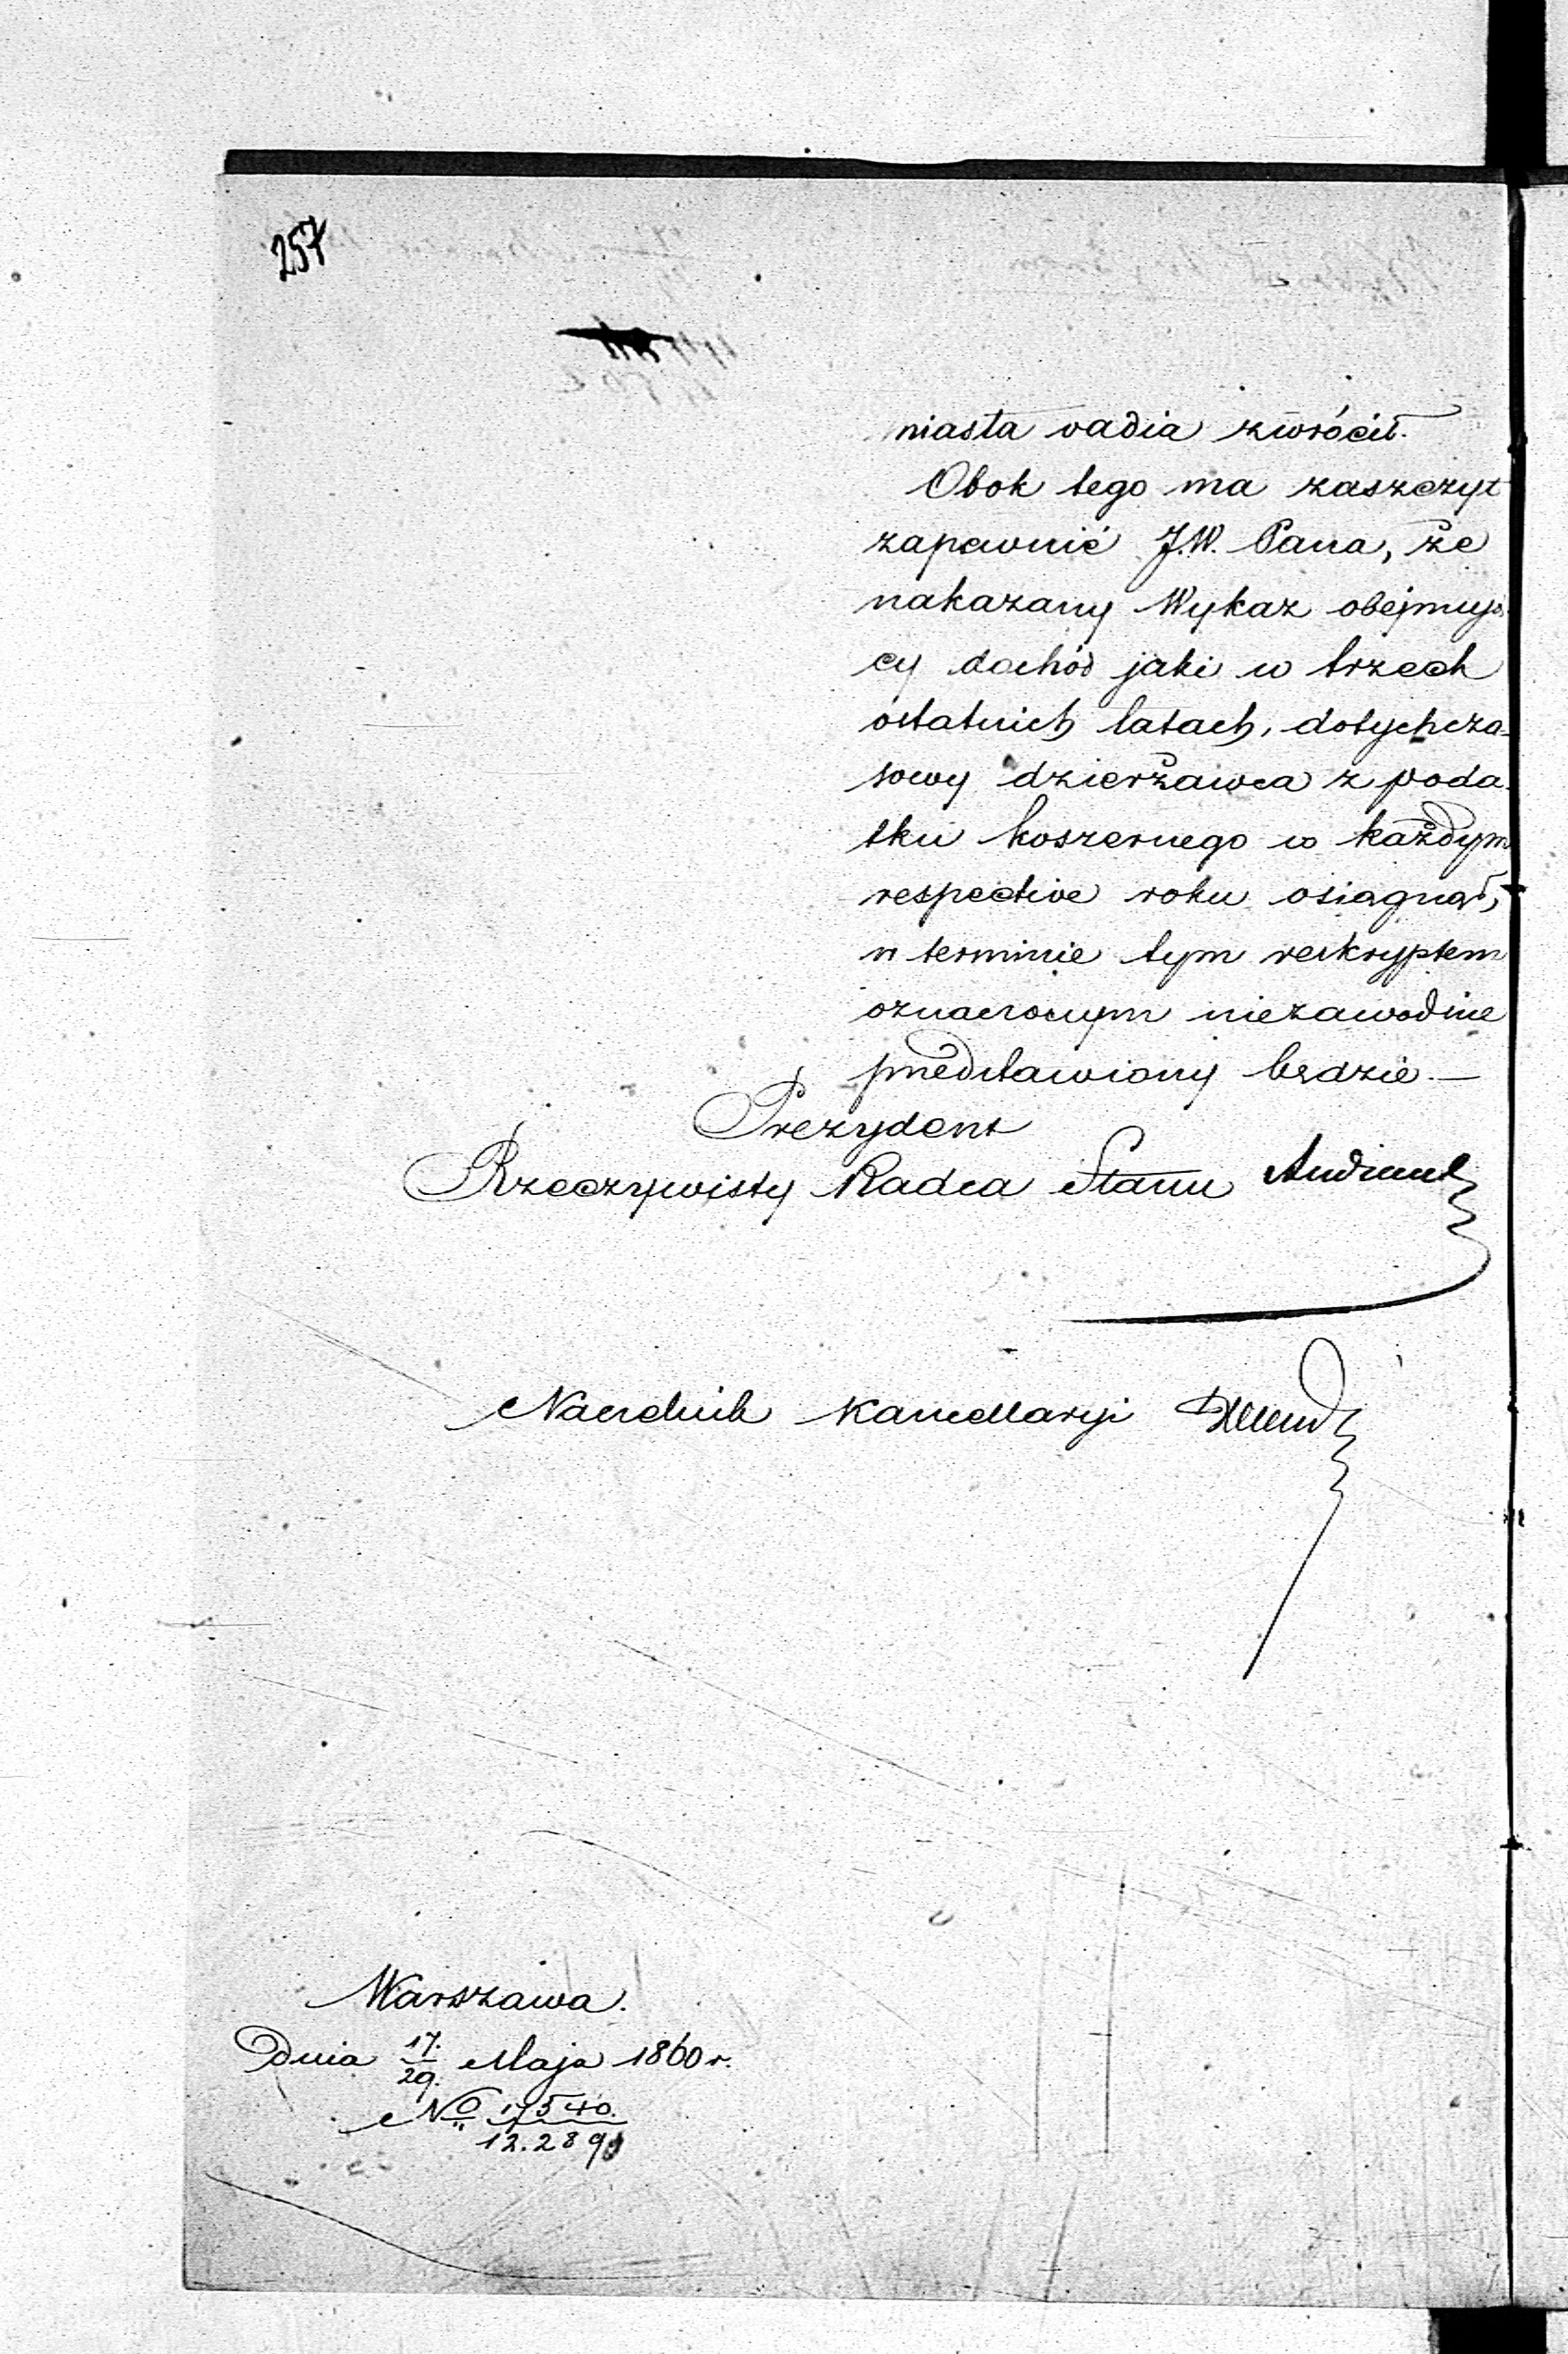 257
miasta vadia zwrócił.
Obok tego ma zaszczyt
zapewnić J.W. Pana, że
nakazany Wykaz obejmują
cy dochód jaki w trzech
ostatnich latach, dotychcza-
sowy dzierżawca z poda-
tku koszernego w każdym
respective roku osiągnął,
w terminie tym reskryptem
oznaczonym niezawodnie
przedstawiony będzie —
Prezydent
Rzeczywisty Radca Stanu
Naczelnik Kancellaryi
Warszawa.
Dnia 17./29. Maja 1860 r.
No 17540.
12.289